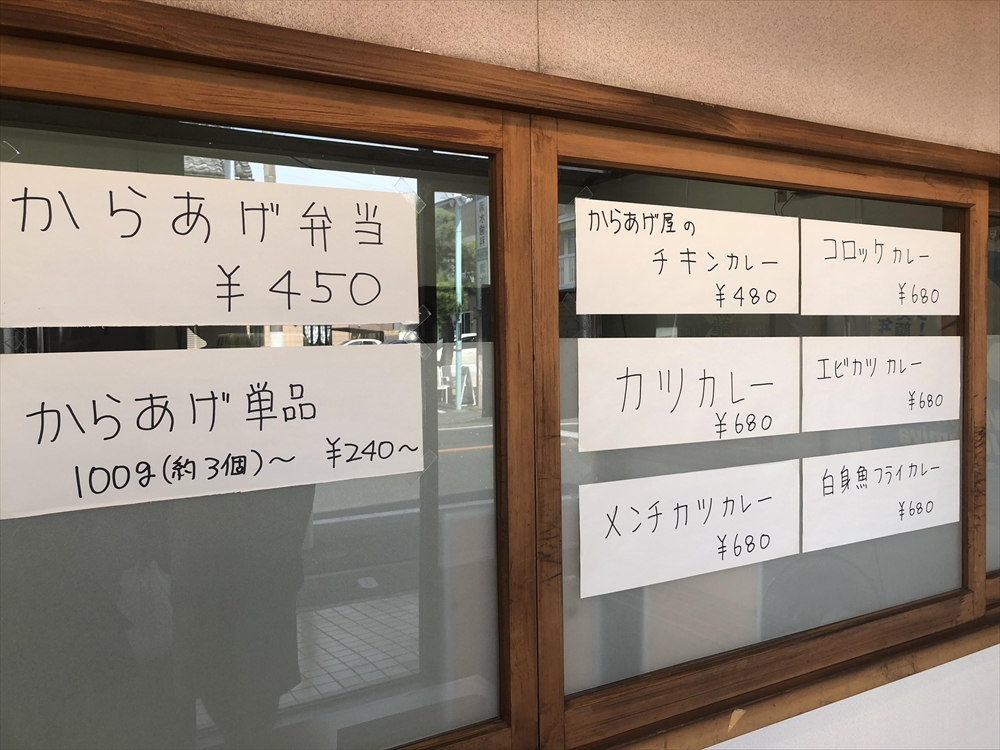 からあげ弁当
¥450
からあげ単品
100g(約3個)～ ¥240～
からあげ屋の
チキンカレー
¥480
コロッケカレー
¥680
カツカレー
¥680
エビカツカレー
¥680
メンチカツカレー
¥680
白身魚フライカレー
¥680